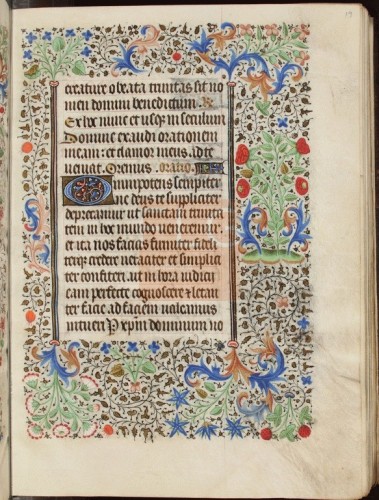 creature o beata trinitas sit no
men domini benedictum. R.
Ex hoc nunc et usqz in seculum
Domine exaudi orationem
meam. et clamor meus. ad te
ueniat. Oremus. oratio.
Omnipotens sempiter
ne deus te suppliciter
deprecamur ut sanctam trinita
tem in hoc mundo ueneremur.
et ita nos facias firmiter fideli
terqz credere ueraciter et simplici
ter confiteri. ut in hora iudicij
eam perfecte cognoscere et letan
ter facie ad faciem ualeamus
intueri P xpm dominum no